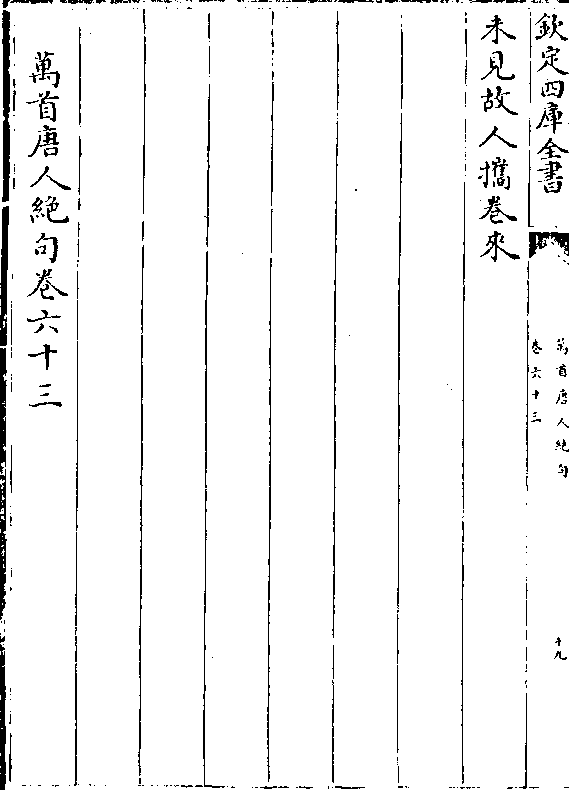 欽定四庫全書
萬首唐人絶句
卷六十三
十九
未見故人擕卷來
萬首唐人絶句卷六十三